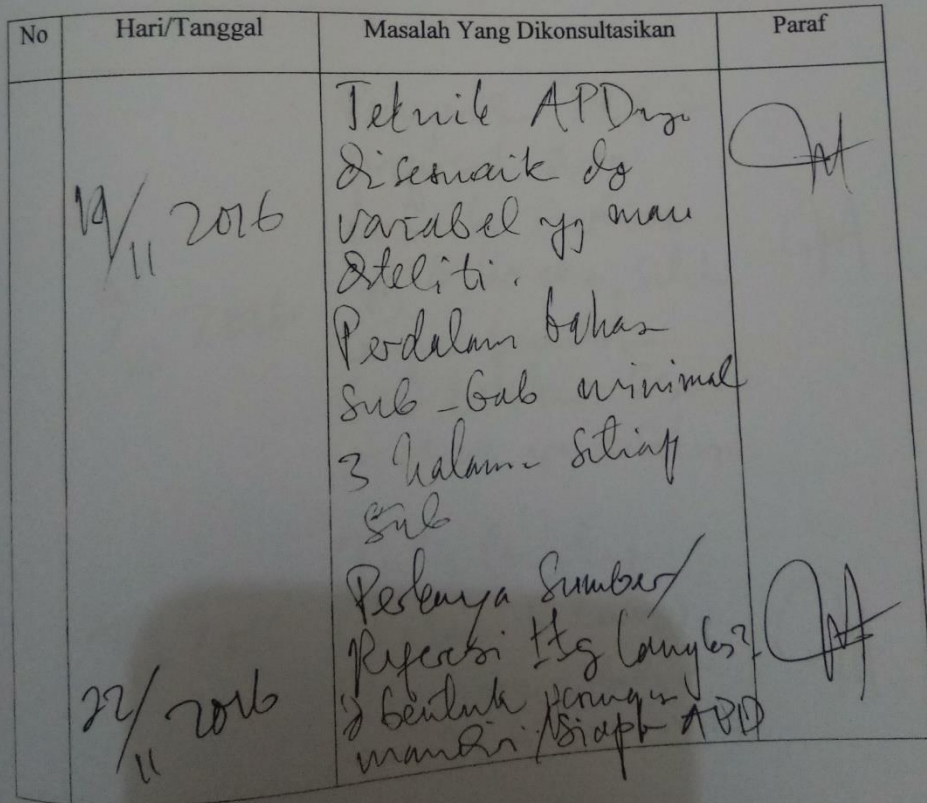 No Hari/Tanggal Masalah Yang Dikonsultasikan Paraf
Teknik APDnya
disesuaik dg
19/11 2016
variabel yg mau
diteliti.
Perdalam bahas
Sub-bab minimal
3 halam setiap
Sub
Perkaya Sumber/
Referensi ttg
22/11 2016
bentuk
mandiri / APD